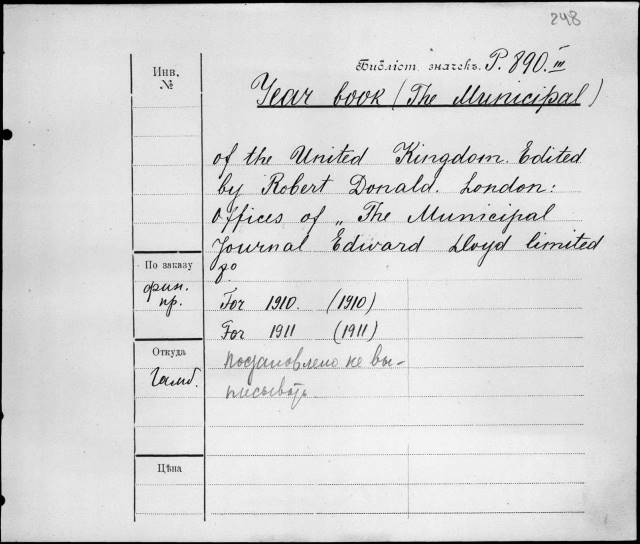 248
Библіот. значекъ. P. 890. III
Инв.
№
Year book (The Municipal)
of the United Kingdom. Edited
by Robert Donald. London:
Offices of „ The Municipal
Journal Edward Lloyd limited
8º
По заказу
фин.
пр.
For 1910. (1910)
For 1911 (1911)
Откуда
Гамб.
Постановлено не вы-
писывать.
Цѣна